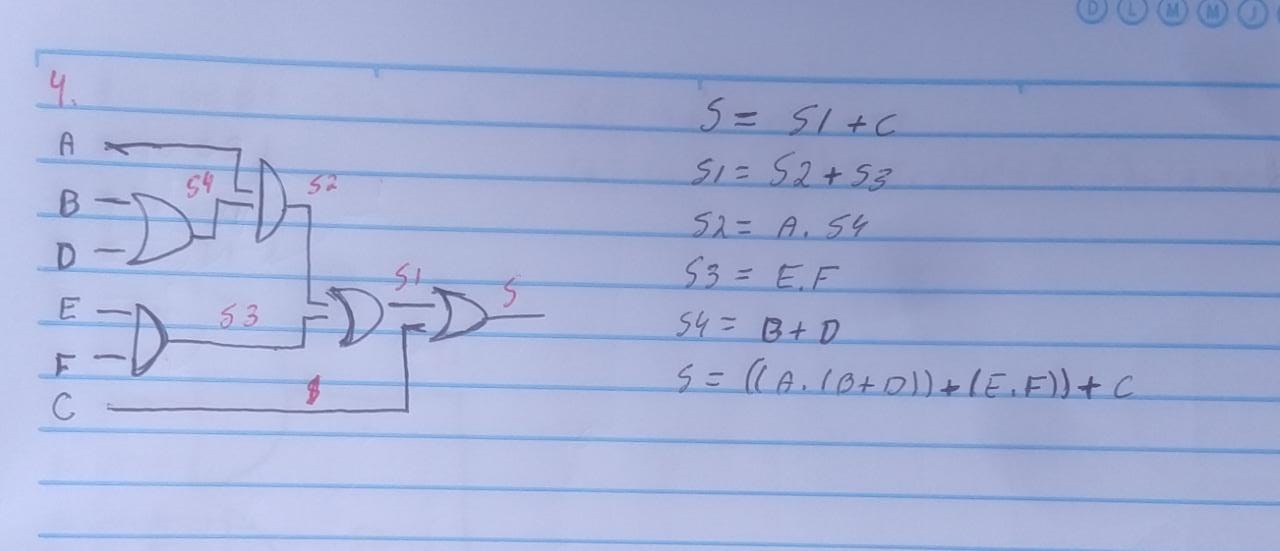 D L M M J
4.
A
B
D
E
F
C
S4
S2
S3
S1
S
S = S1 + C
S1 = S2 + S3
S2 = A. S4
S3 = E.F
S4 = B+D
S = ((A.(B+D))+(E.F))+ C